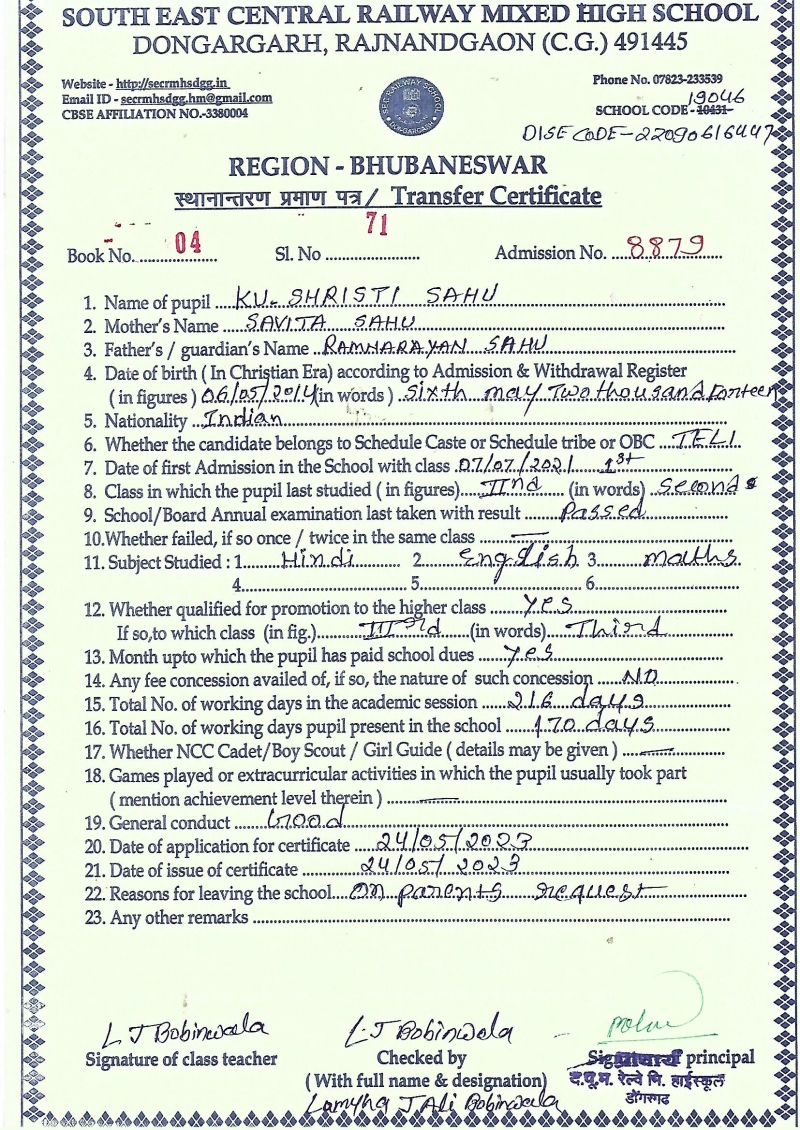 SOUTH EAST CENTRAL RAILWAY MIXED HIGH SCHOOL
DONGARGARH, RAJNANDGAON (C.G.) 491445
Website - http://secrmhsdgg.in
Phone No. 07823-233539
Email ID - secrmhsdgg.hm@gmail.com
19046
CBSE AFFILIATION NO.-3380004
SCHOOL CODE - 10431-
DISE CODE-22090616447
SEC RAILWAY SCHOOL
DONGARGARH
REGION - BHUBANESWAR
स्थानान्तरण प्रमाण पत्र / Transfer Certificate
Book No. 04 Sl. No 71 Admission No. 8879
1. Name of pupil KU. SHRISTI SAHU
2. Mother's Name SAVITA SAHU
3. Father's / guardian's Name RAMNARAYAN SAHU
4. Date of birth ( In Christian Era) according to Admission & Withdrawal Register
(in figures ) 06/05/2014 (in words ) Sixth may Two thousand fonteen
5. Nationality Indian
6. Whether the candidate belongs to Schedule Caste or Schedule tribe or OBC TELI
7. Date of first Admission in the School with class 07/07/2021 1st
8. Class in which the pupil last studied ( in figures) IInd (in words) Second
9. School/Board Annual examination last taken with result Passed
10.Whether failed, if so once / twice in the same class —
11. Subject Studied : 1 Hindi 2 English 3 maths
4 5 6
12. Whether qualified for promotion to the higher class yes
If so,to which class (in fig.) IIIrd (in words) Third
13. Month upto which the pupil has paid school dues yes
14. Any fee concession availed of, if so, the nature of such concession NO
15. Total No. of working days in the academic session 216 days
16. Total No. of working days pupil present in the school 170 days
17. Whether NCC Cadet/Boy Scout / Girl Guide ( details may be given ) —
18. Games played or extracurricular activities in which the pupil usually took part
( mention achievement level therein ) —
19. General conduct Good
20. Date of application for certificate 24/05/2023
21. Date of issue of certificate 24/05/2023
22. Reasons for leaving the school On parents request
23. Any other remarks
L J Bobinwala L J Bobinwala
Signature of class teacher Checked by principal
(With full name & designation)
प्राचार्य
द.पू.म. रेल्वे मि. हाईस्कूल
डोंगरगढ़
Lamyha J Ali Bobinwala